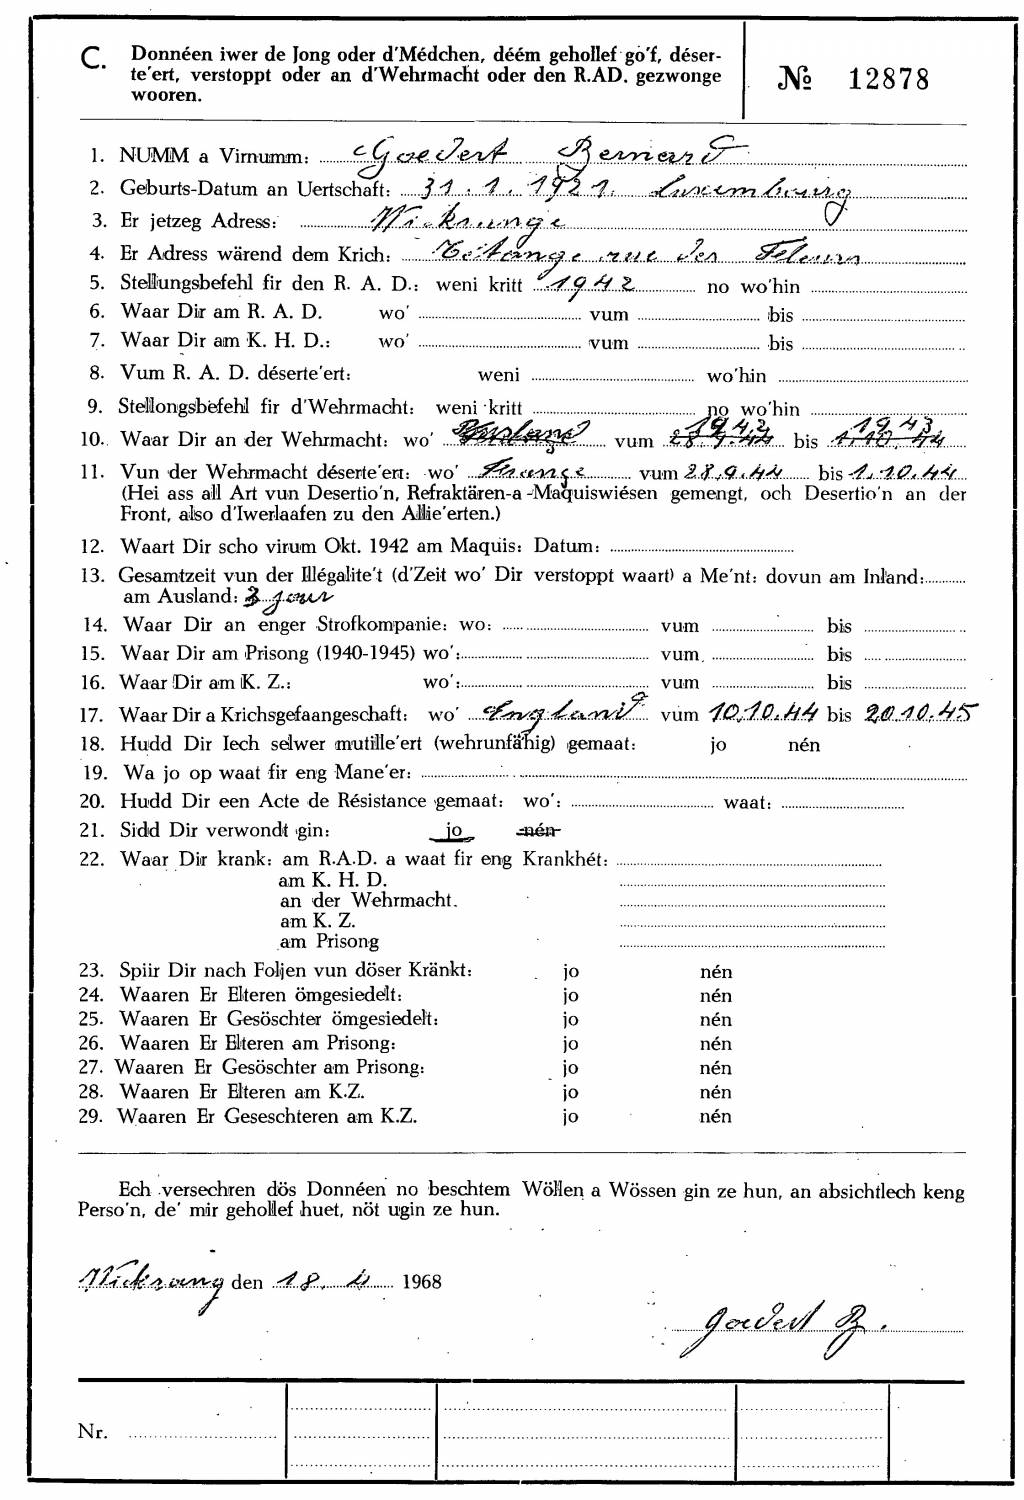 C. Donnéen iwer de Jong oder d'Médchen, déém gehollef go'f, déser-
te'ert, verstoppt oder an d'Wehrmacht oder den R.AD. gezwonge
wooren.
№ 12878
1. NUMM a Virnumm: Goedert Bernard
2. Geburts-Datum an Uertschaft: 31.1.1921. Luxembourg
3. Er jetzeg Adress: Wickrange
4. Er Adress wärend dem Krich: Tétange rue des Fleurs
5. Stellungsbefehl fir den R. A. D.: weni kritt 1942 no wo'hin
6. Waar Dir am R. A. D. wo' vum bis
7. Waar Dir am K. H. D.: wo' vum bis
8. Vum R. A. D. déserte'ert: weni wo'hin
9. Stellongsbefehl fir d'Wehrmacht: weni kritt no wo'hin
1942 1943
10. Waar Dir an der Wehrmacht: wo' vum 28.9.44 bis 1.10.44
11. Vun der Wehrmacht déserte'ert: wo' vum 28.9.44 bis 1.10.44
(Hei ass all Art vun Desertio'n, Refraktären-a-Maquiswiésen gemengt, och Desertio'n an der
Front, also d'Iwerlaafen zu den Allie'erten.)
12. Waart Dir scho virum Okt. 1942 am Maquis: Datum:
13. Gesamtzeit vun der Illégalite't (d'Zeit wo' Dir verstoppt waart) a Me'nt: dovun am Inland:
am Ausland: 3 jour
14. Waar Dir an enger Strofkompanie: wo: vum bis
15. Waar Dir am Prisong (1940-1945) wo': vum bis
16. Waar Dir am K. Z.: wo': vum bis
17. Waar Dir a Krichsgefaangeschaft: wo' England vum 10.10.44 bis 20.10.45
18. Hudd Dir Iech selwer mutille'ert (wehrunfähig) gemaat: jo nén
19. Wa jo op waat fir eng Mane'er:
20. Hudd Dir een Acte de Résistance gemaat: wo': waat:
21. Sidd Dir verwondt gin: jo nén
22. Waar Dir krank: am R.A.D. a waat fir eng Krankhét:
am K. H. D.
an der Wehrmacht.
am K. Z.
am Prisong
23. Spiir Dir nach Foljen vun döser Kränkt: jo nén
24. Waaren Er Elteren ömgesiedelt: jo nén
25. Waaren Er Gesöschter ömgesiedelt: jo nén
26. Waaren Er Elteren am Prisong: jo nén
27. Waaren Er Gesöschter am Prisong: jo nén
28. Waaren Er Elteren am K.Z. jo nén
29. Waaren Er Geseschteren am K.Z. jo nén
Ech versechren dös Donnéen no beschtem Wöllen a Wössen gin ze hun, an absichtlech keng
Perso'n, de' mir gehollef huet, nöt ugin ze hun.
Wickrang den 18. 4 1968
Goedert B.
Nr.